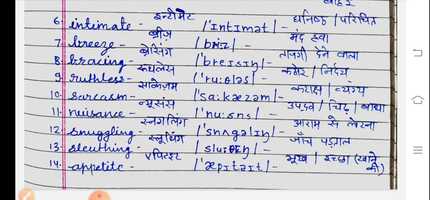 6. intimate - इन्टीमेट /'IntImət/ - घनिष्ठ / परिचित
7. breeze - ब्रीज़ /bri:z/ - मंद हवा
8. bracing - ब्रेसिंग /'breIsIŋ/ - ताजगी देने वाला
9. ruthless - रूथलेस /'ru:θləs/ - कठोर / निर्दय
10. sarcasm - सार्कज़म /'sa:kæzəm/ - कटाक्ष / व्यंग्य
11. nuisance - न्यूसेंस /'nu:sns/ - उपद्रव / चिढ़ / बाधा
12. snuggling - स्नगलिंग /'snʌglIŋ/ - आराम से लेटना
13. sleuthing - स्लूथिंग /slu:θIŋ/ - जाँच पड़ताल
14. appetite - एपिटाइट /'æpItaIt/ - भूख / इच्छा (खाने की)